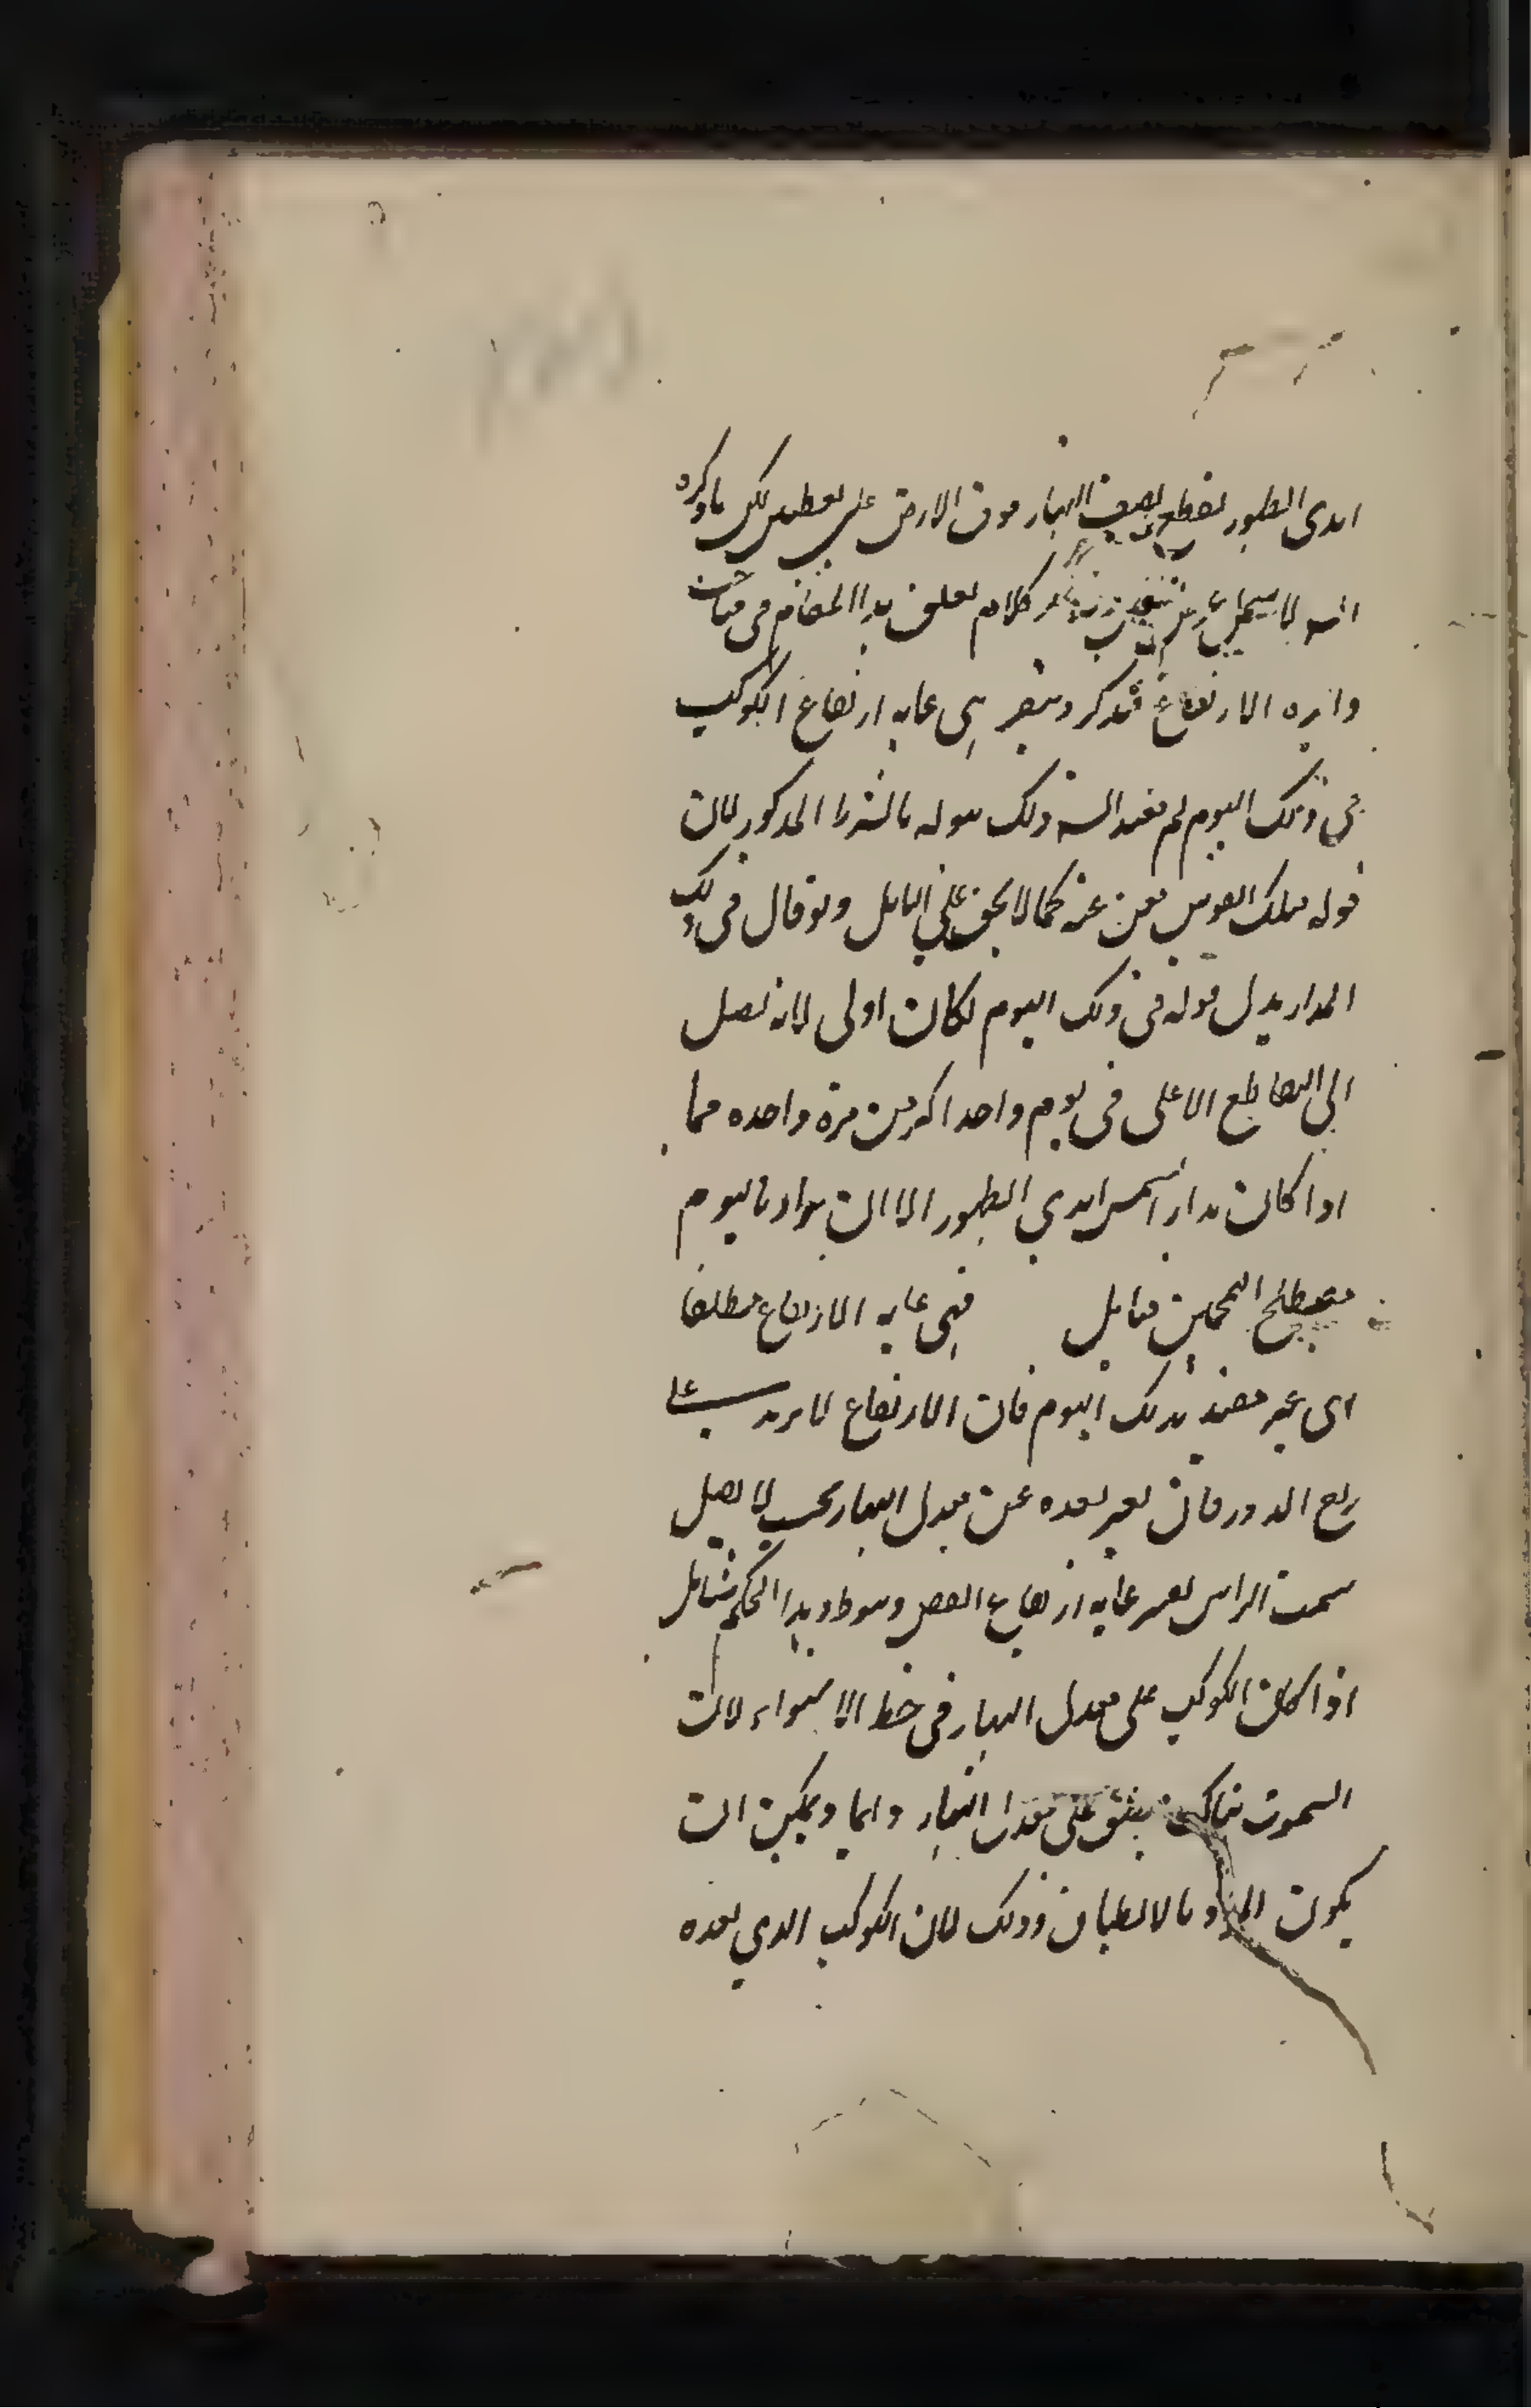 ابدى الظهور يقطع نصف النهار فوق الارض على نقطتين لكن ما ذكره
انه لا كلام يتعلق بهذا المقام فى مباحث
دايره الارتفاع فتذكر وتبصر هى غايه ارتفاع الكوكب
فى ذلك اليوم لم يقيد السه ذلك بقوله بالشرط المذكور لان
قوله بتلك القوس مغن عنه كما لا يخفى على التامل ولو قال فى ذلك
المدار بدل قوله فى ذلك اليوم لكان اولى لانه يصل
الى التقاطع الاعلى فى يوم واحد اكثر من مرة واحده فيما
اذا كان مدار الشمس ابدي الظهور الا ان يراد باليوم
مصطلح المنجمين فتامل فهى غايه الارتفاع مطلقا
اى غير مقيد بذلك اليوم فان الارتفاع لا يزيد على
ربع الدور فان تغير بعده عن معدل النهار بحيث لا يصل
سمت الراس تغير غايه ارتفاعه النقص وهو ط وهذا الحكم شامل
اذا كان الكوكب على معدل النهار فى خط الاستواء لان
السموت هناك ينطبق على معدل النهار دايما ويمكن ان
يكون المراد بالانطباق وذلك لان الكوكب الذي بعده